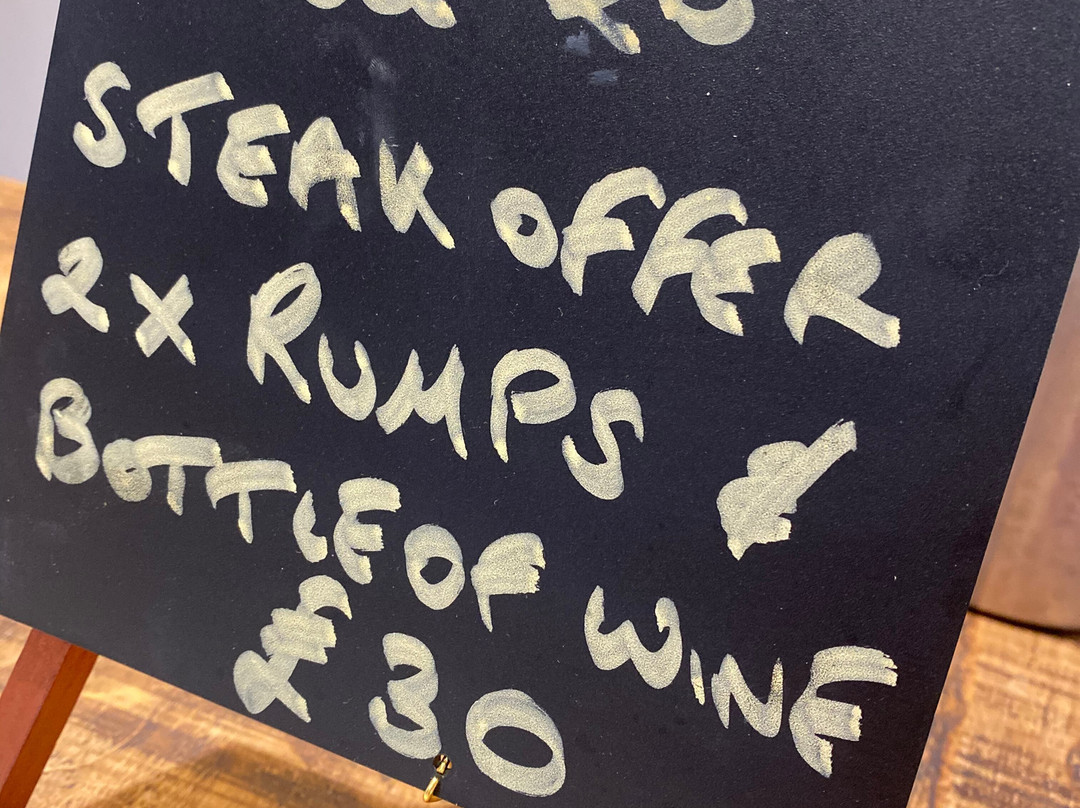 STEAK OFFER
2 X RUMPS &
BOTTLE OF WINE
£30